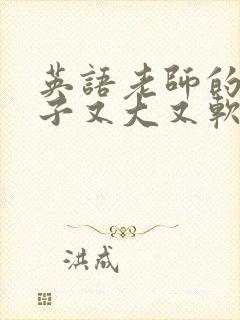 英語老師的
子又大又軟
洪成